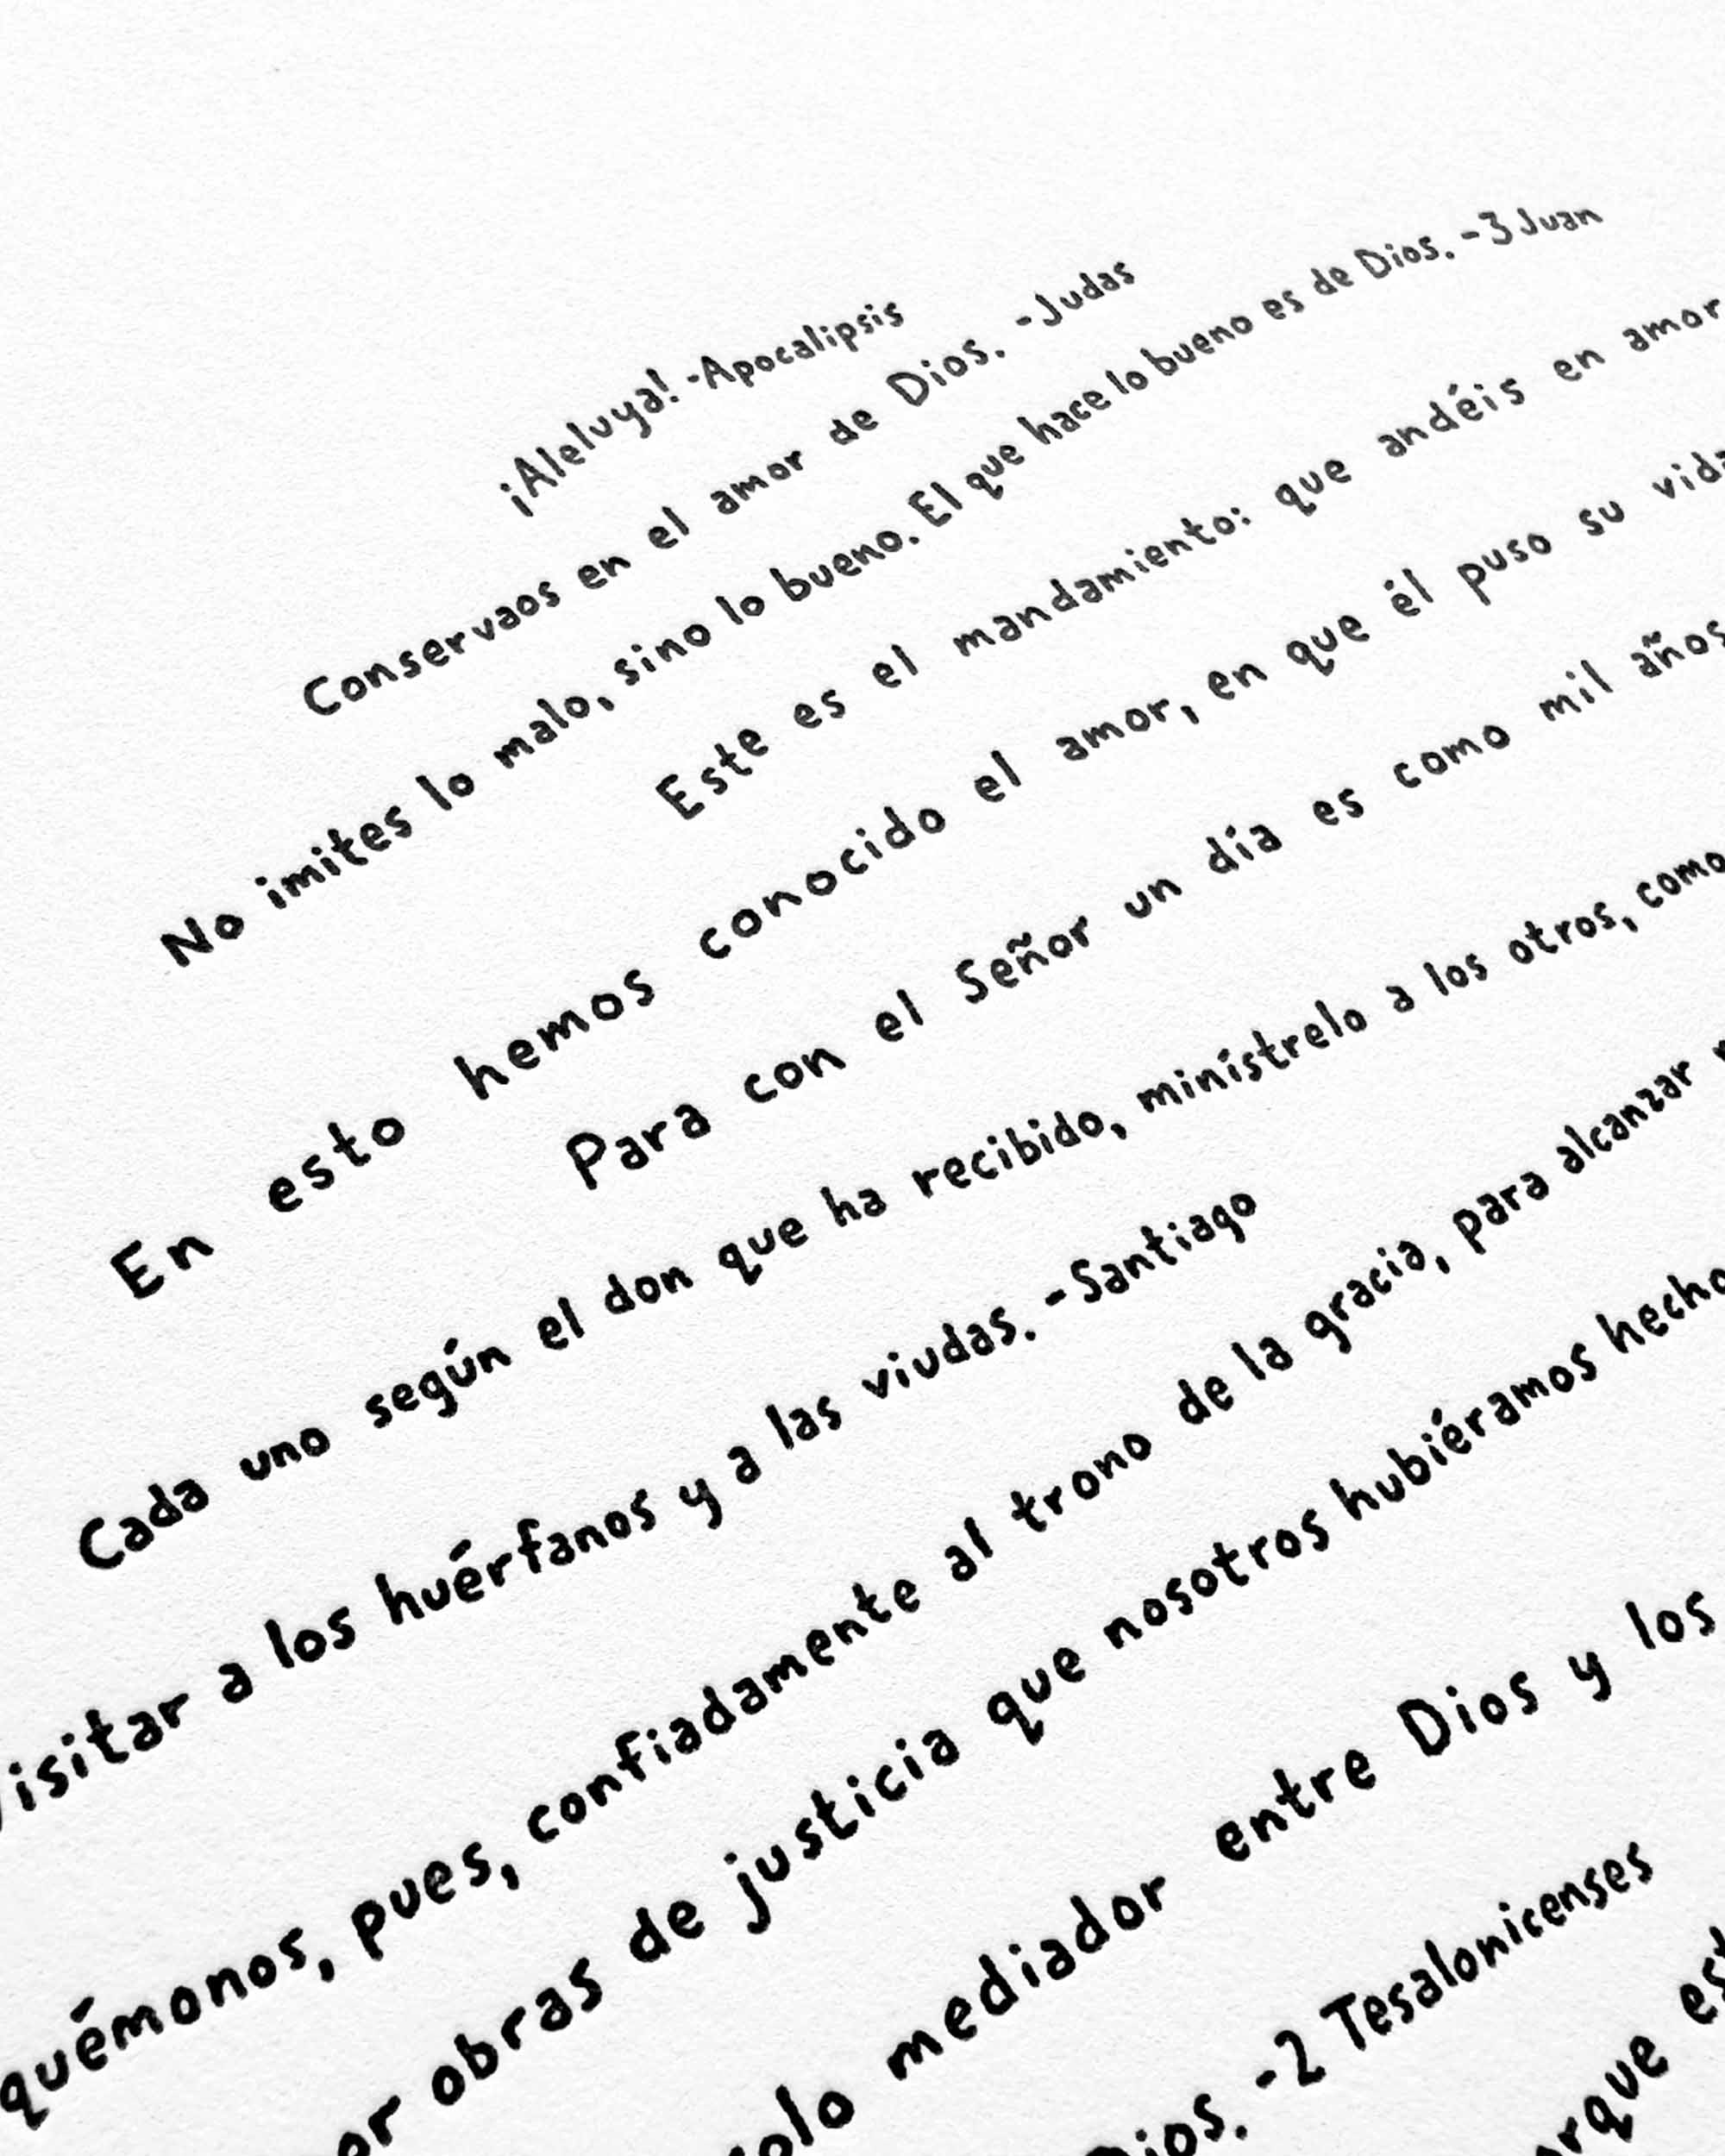 ¡Aleluya! -Apocalipsis
Conservaos en el amor de Dios. -Judas
No imites lo malo, sino lo bueno. El que hace lo bueno es de Dios. -3 Juan
Este es el mandamiento: que andéis en amor
En esto hemos conocido el amor, en que él puso su vida
Para con el Señor un día es como mil años
Cada uno según el don que ha recibido, minístrelo a los otros, como
visitar a los huérfanos y a las viudas. -Santiago
quémonos, pues, confiadamente al trono de la gracia, para alcanzar
or obras de justicia que nosotros hubiéramos hecho
solo mediador entre Dios y los
Dios. -2 Tesalonicenses
rque est